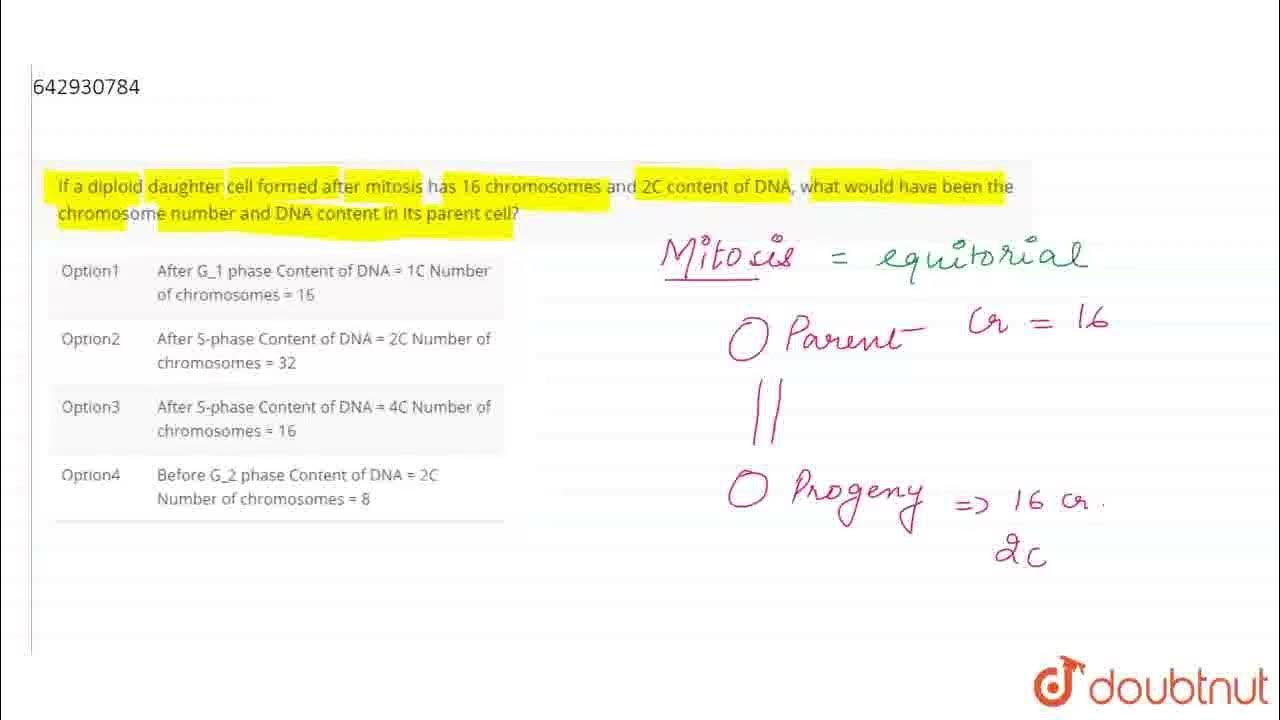 642930784
If a diploid daughter cell formed after mitosis has 16 chromosomes and 2C content of DNA, what would have been the
chromosome number and DNA content in its parent cell?
Option1 After G_1 phase Content of DNA = 1C Number
of chromosomes = 16
Option2 After S-phase Content of DNA = 2C Number of
chromosomes = 32
Option3 After S-phase Content of DNA = 4C Number of
chromosomes = 16
Option4 Before G_2 phase Content of DNA = 2C
Number of chromosomes = 8
Mitosis = equitorial
Parent Cr = 16
Progeny => 16 cr.
2C
doubtnut